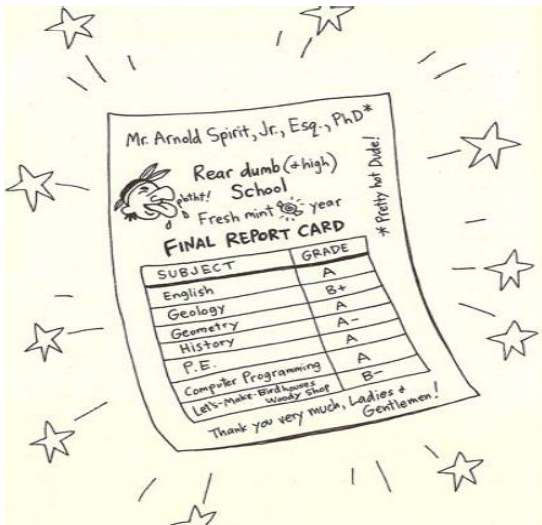 Mr. Arnold Spirit, Jr., Esq., PhD*
* Pretty hot Dude!
Rear dumb (& high)
School
phtht!
Fresh mint year
FINAL REPORT CARD
SUBJECT GRADE
English A
Geology B+
Geometry A
History A-
P.E. A
Computer Programming A
Let's-Make-Birdhouses Woody Shop B-
Thank you very much, Ladies &
Gentlemen!